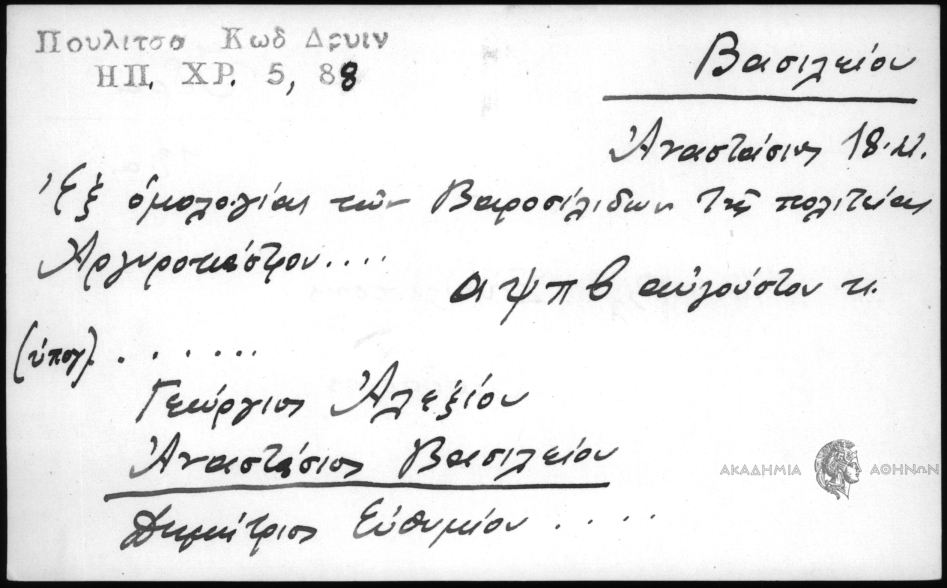 Πουλιτσα Κωδ Δρυιν
ΗΠ. ΧΡ. 5, 88
Βασιλείου
Ἀναστάσιος 18.αι.
Ἐξ ὁμολογίας τῶν Βαροσίλιδων τῆς πολιτείας
Ἀργυροκάστρου....
αψπβ αὐγούστου κ.
(ὑπογ). . . . . . .
Γεώργιος Ἀλεξίου
Ἀναστάσιος Βασιλείου
Δημήτρις Εὐθυμίου . . . .
ΑΚΑΔΗΜΙΑ ΑΘΗΝΩΝ